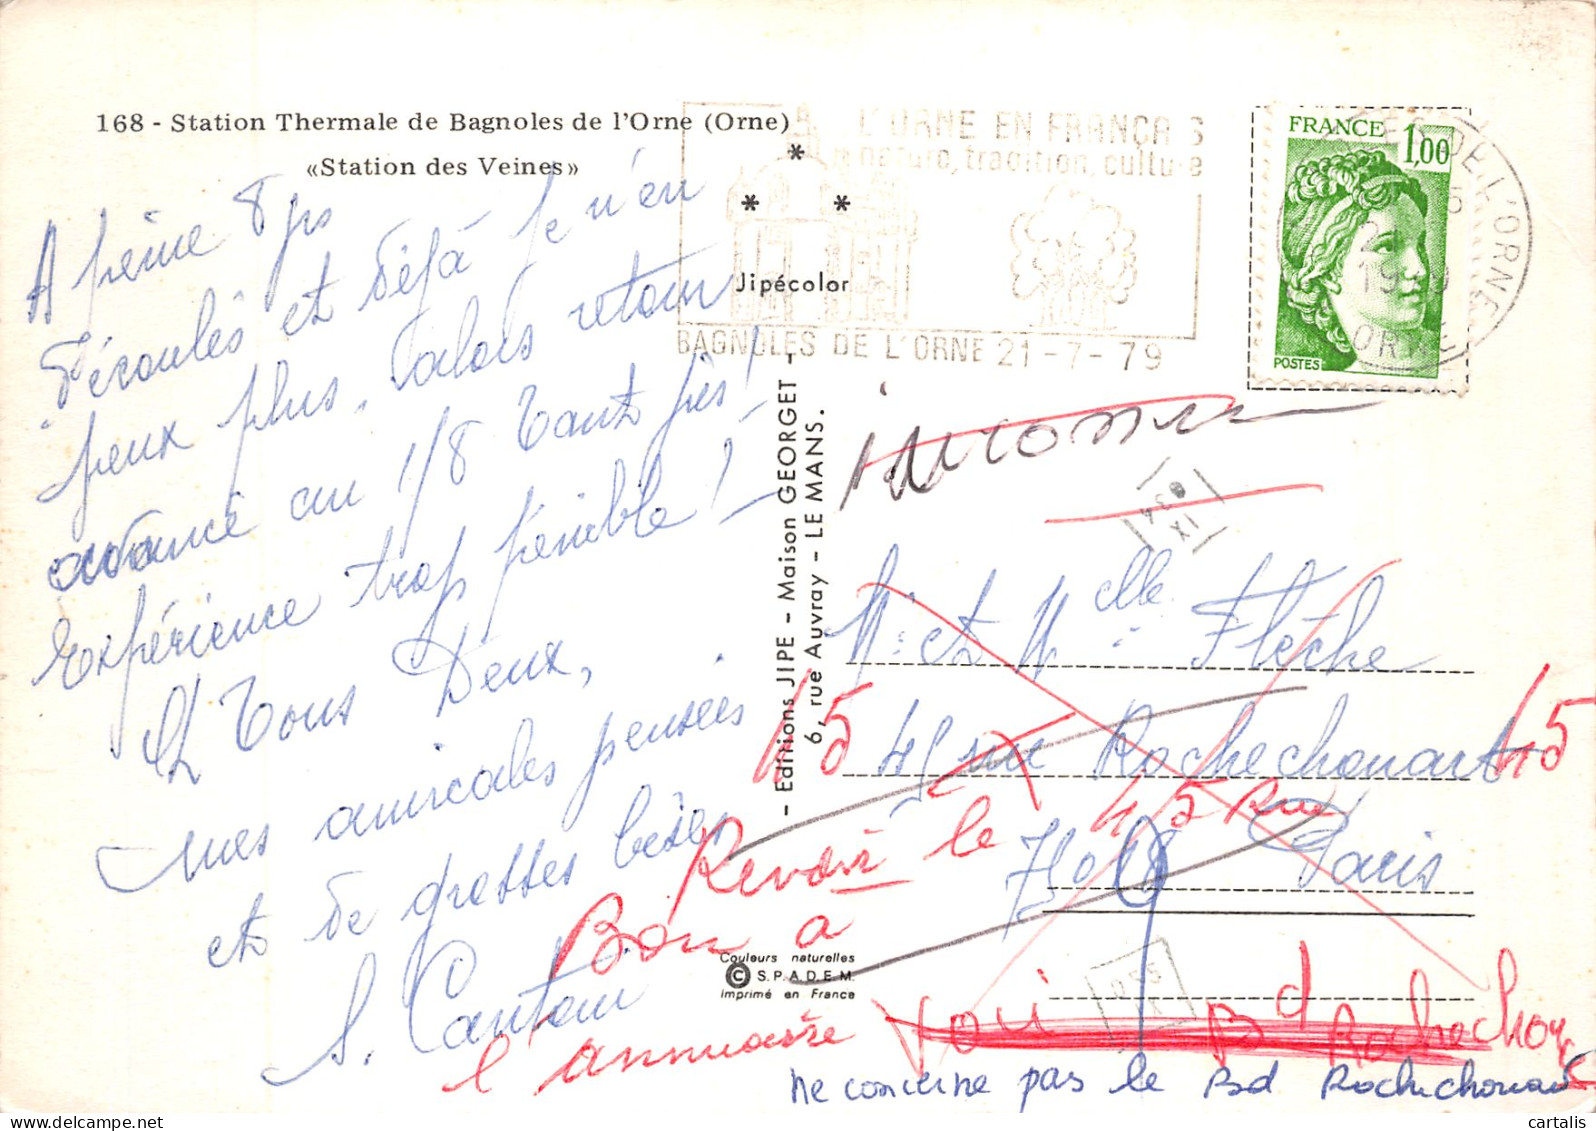 168 - Station Thermale de Bagnoles de l'Orne (Orne)
«Station des Veines»
A peine 8 jrs
écoulés et déjà je n'en
peux plus. Alors retour
avancé au 1/8 tant pis!
Expérience trop pénible! -
A tous Deux,
mes amicales pensées
et de grosses bises
S. Cantou
L'ORNE EN FRANÇAIS
nature, tradition, culture
BAGNOLES DE L'ORNE 21-7-79
Jipécolor
- Editions JIPE - Maison GEORGET -
6, rue Auvray - LE MANS.
Couleurs naturelles
© S.P.A.D.E.M.
Imprimé en France
FRANCE 1,00
POSTES
DE L'ORNE
19
ORNE
inconnu
Mr et Melle Flèche
45 rue Rochechouart
Paris
45
45
Revoir le 45 Rue
Bon a
l'annuaire
Voir Bd Rochechou
ne concerne pas le Bd Rochechouart
cartalis